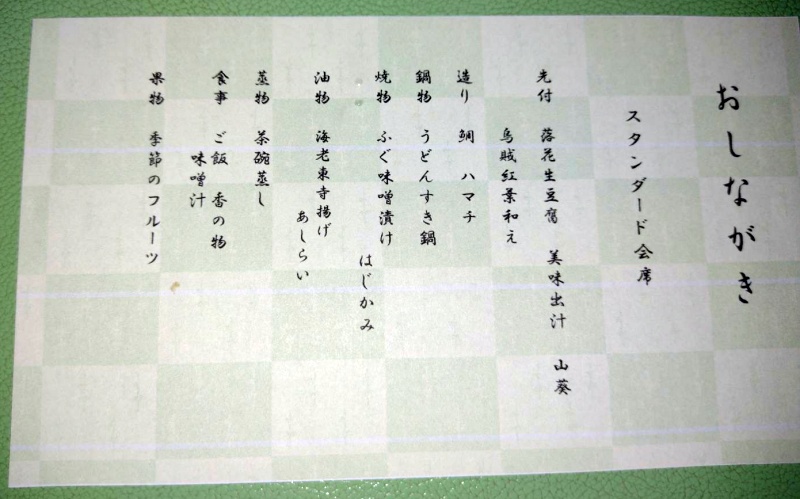 おしながき
スタンダード会席
先付 落花生豆腐 美味出汁 山葵
烏賊紅葉和え
造り 鯛 ハマチ
鍋物 うどんすき鍋
焼物 ふぐ味噌漬け
はじかみ
油物 海老東寺揚げ
あしらい
蒸物 茶碗蒸し
食事 ご飯 香の物
味噌汁
果物 季節のフルーツ